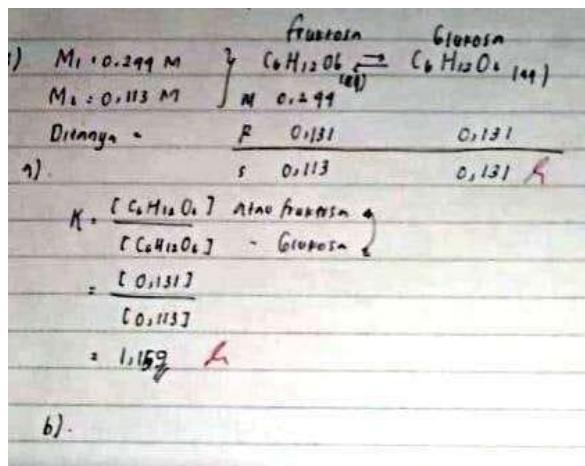 fruktosa Glukosa
) M₁ : 0.244 M } C₆H₁₂O₆ (aq) ⇌ C₆H₁₂O₆ (aq)
M₂ : 0,113 M M 0.244
Ditanya - R 0,131 0,131
a). s 0,113 0,131
K = [C₆H₁₂O₆] Atau fruktosa
[C₆H₁₂O₆] - Glukosa
= [0,131]
[0,113]
= 1,159
b).